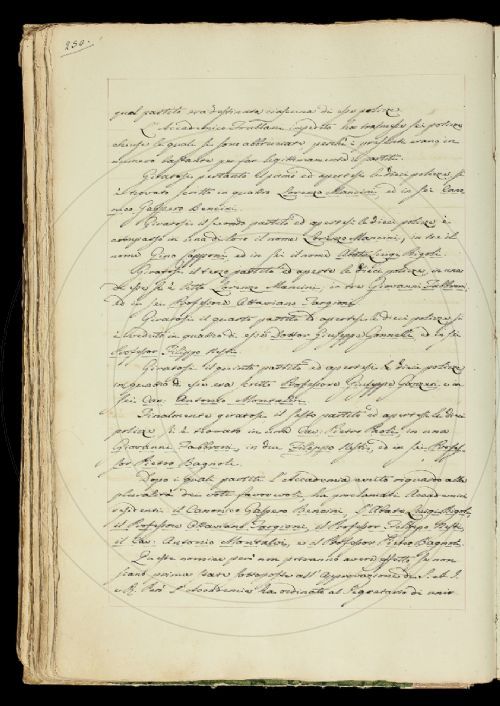 250.
qual partito era destinata ciascuna di esse polizze.
L'Accademico Frullani impedito ha trasmesse sei polizze
chiuse le quali si sono abbruciate perchè i presenti erano in
numero bastante per far legittimamente il partito.
Giratosi pertanto il primo ed apertesi le dieci polizze si
è trovato scritto in quattro Lorenzo Mancini, ed in sei Cano-
nico Gaspero Bencini.
Giratosi il secondo partito ed apertesi le dieci polizze è
comparso in una di loro il nome Lorenzo Mancini, in tre il
nome Gino Capponi, ed in sei il nome Abate Luigi Rigoli.
Giratosi il terzo partito ed aperte le dieci polizze, in una
di esse si è letto Lorenzo Mancini, in tre Giovanni Fabbroni,
ed in sei Professore Ottaviano Targioni.
Giratosi il quarto partito ed apertesi le dieci polizze si
è veduto in quattro di esse Dottor Giuseppe Gonnella ed in sei
Professor Filippo Nesti.
Giratosi il quinto partito ed apertesi le dieci polizze
in quattro di esse era scritto Professore Giuseppe e in
sei Cav. Antonio Montalvi.
Finalmente giratosi il sesto partito ed apertesi le dieci
polizze si è trovato in una Cav. Pietro Paoli, in una
Giovanni Fabbroni, in due Filippo Nesti, ed in sei Profes-
sor Pietro Bagnoli.
Dopo i quali partiti l'Accademia avuto riguardo alla
pluralità dei voti favorevoli, ha proclamati Accademici
residenti il Canonico Gaspero Bencini, l'Abate Luigi Rigoli,
il Professore Ottaviano Targioni, il Professor Filippo Nesti
il Cav. Antonio Montalvi, e il Professor Pietro Bagnoli.
Queste nomine però non potranno avere effetto, se non
siano prima state sottoposte all'Approvazione di S. A. I.
e R. Però l'Accademia ha ordinato al Segretario di unir